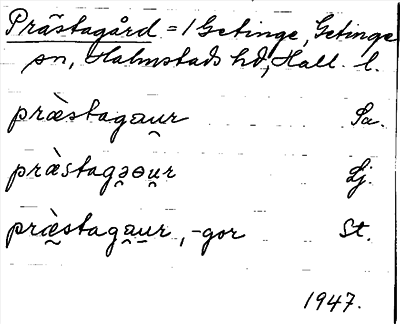 Prästagård = 1 Getinge, Getinge
sn, Halmstads hd, Hall. l.
præ̀stagau̯r Sa.
præ̀stagə̯ɵu̯r Lj.
præ̀stagau̯r, -gor St.
1947.